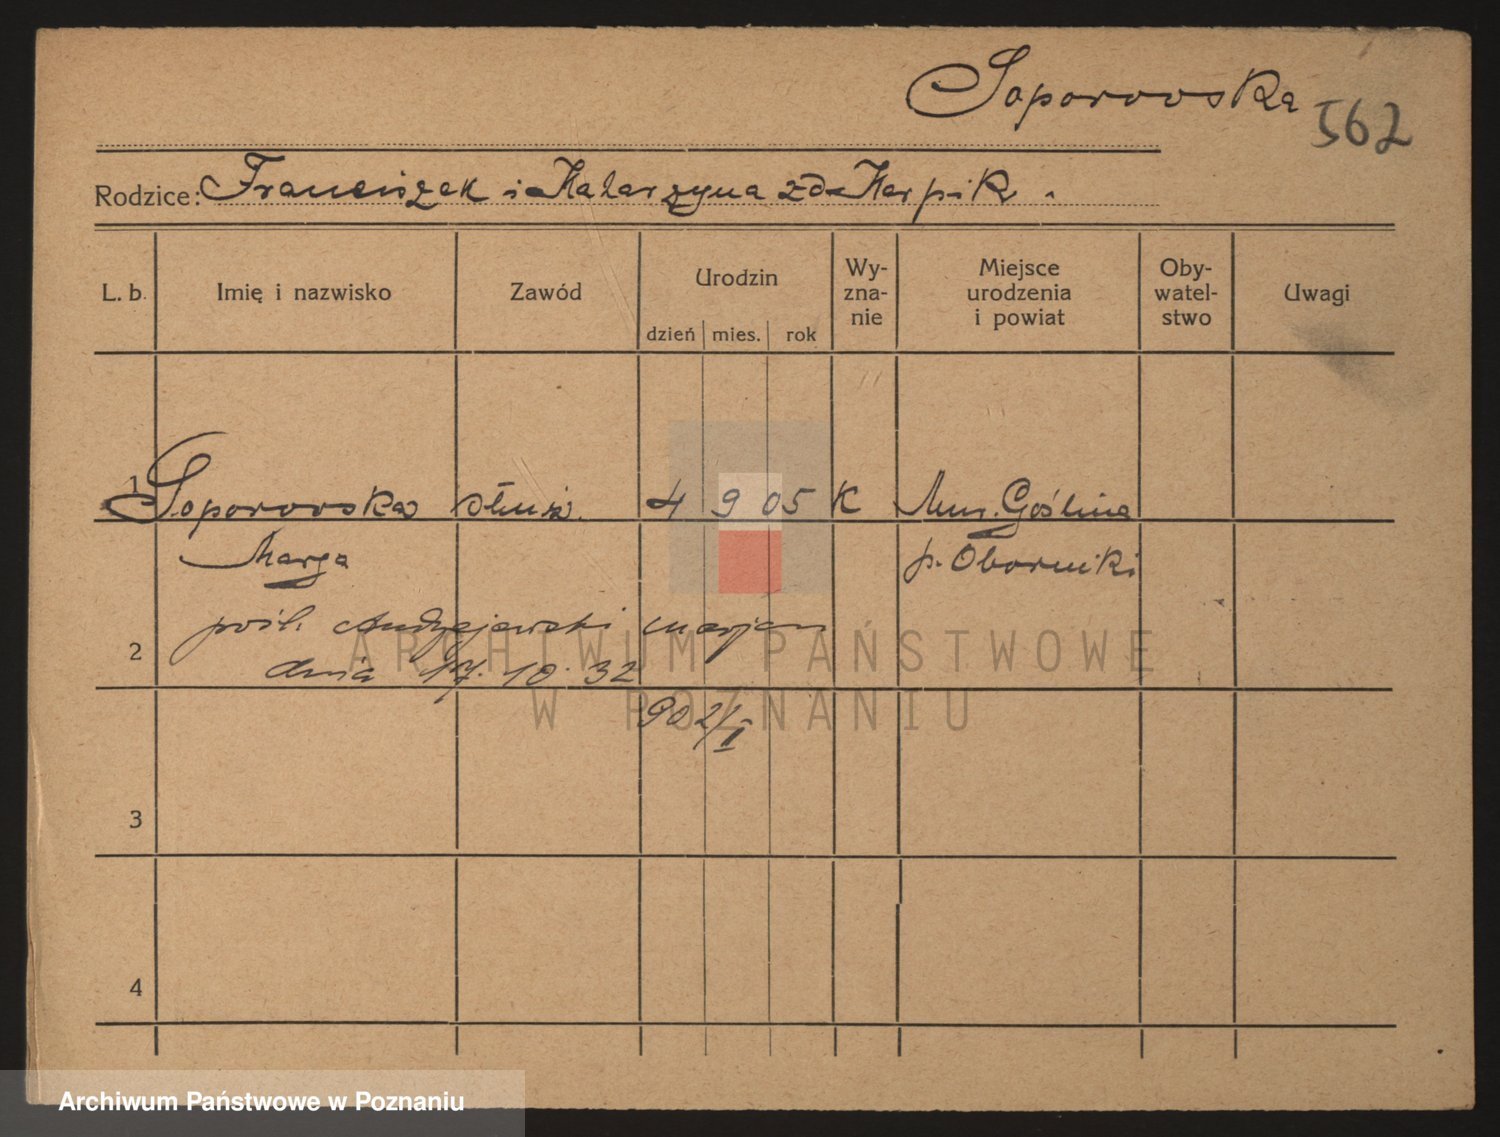 Soporowska
562
Rodzice: Franciszek i Katarzyna zd Karpik.
L. b. Imię i nazwisko Zawód Urodzin dzień mies. rok Wy-zna-nie Miejsce urodzenia i powiat Oby-watel-stwo Uwagi
1 Soporowska służ. 4 9 05 K Mur. Goślina
Marga p. Oborniki
pośl. Andrzejewski Marjan
2 dnia 17. 10. 32
902/II
3
4
ARCHIWUM PAŃSTWOWE
W POZNANIU
Archiwum Państwowe w Poznaniu